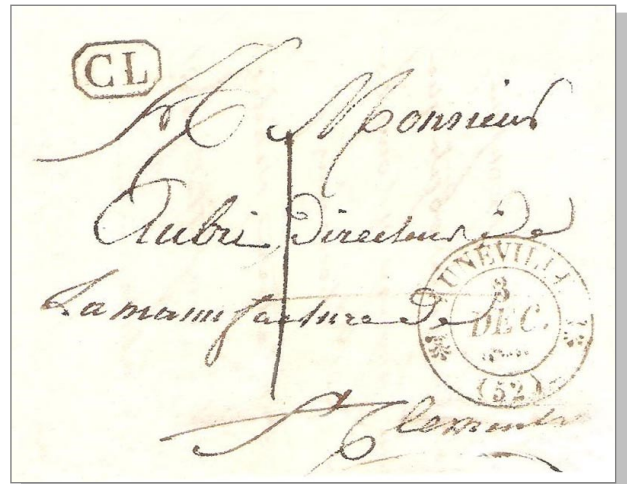 CL
A Monsieur
Aubri Directeur de
La manufacture de
St Clement
LUNÉVILLE
3
DEC.
(52)
1